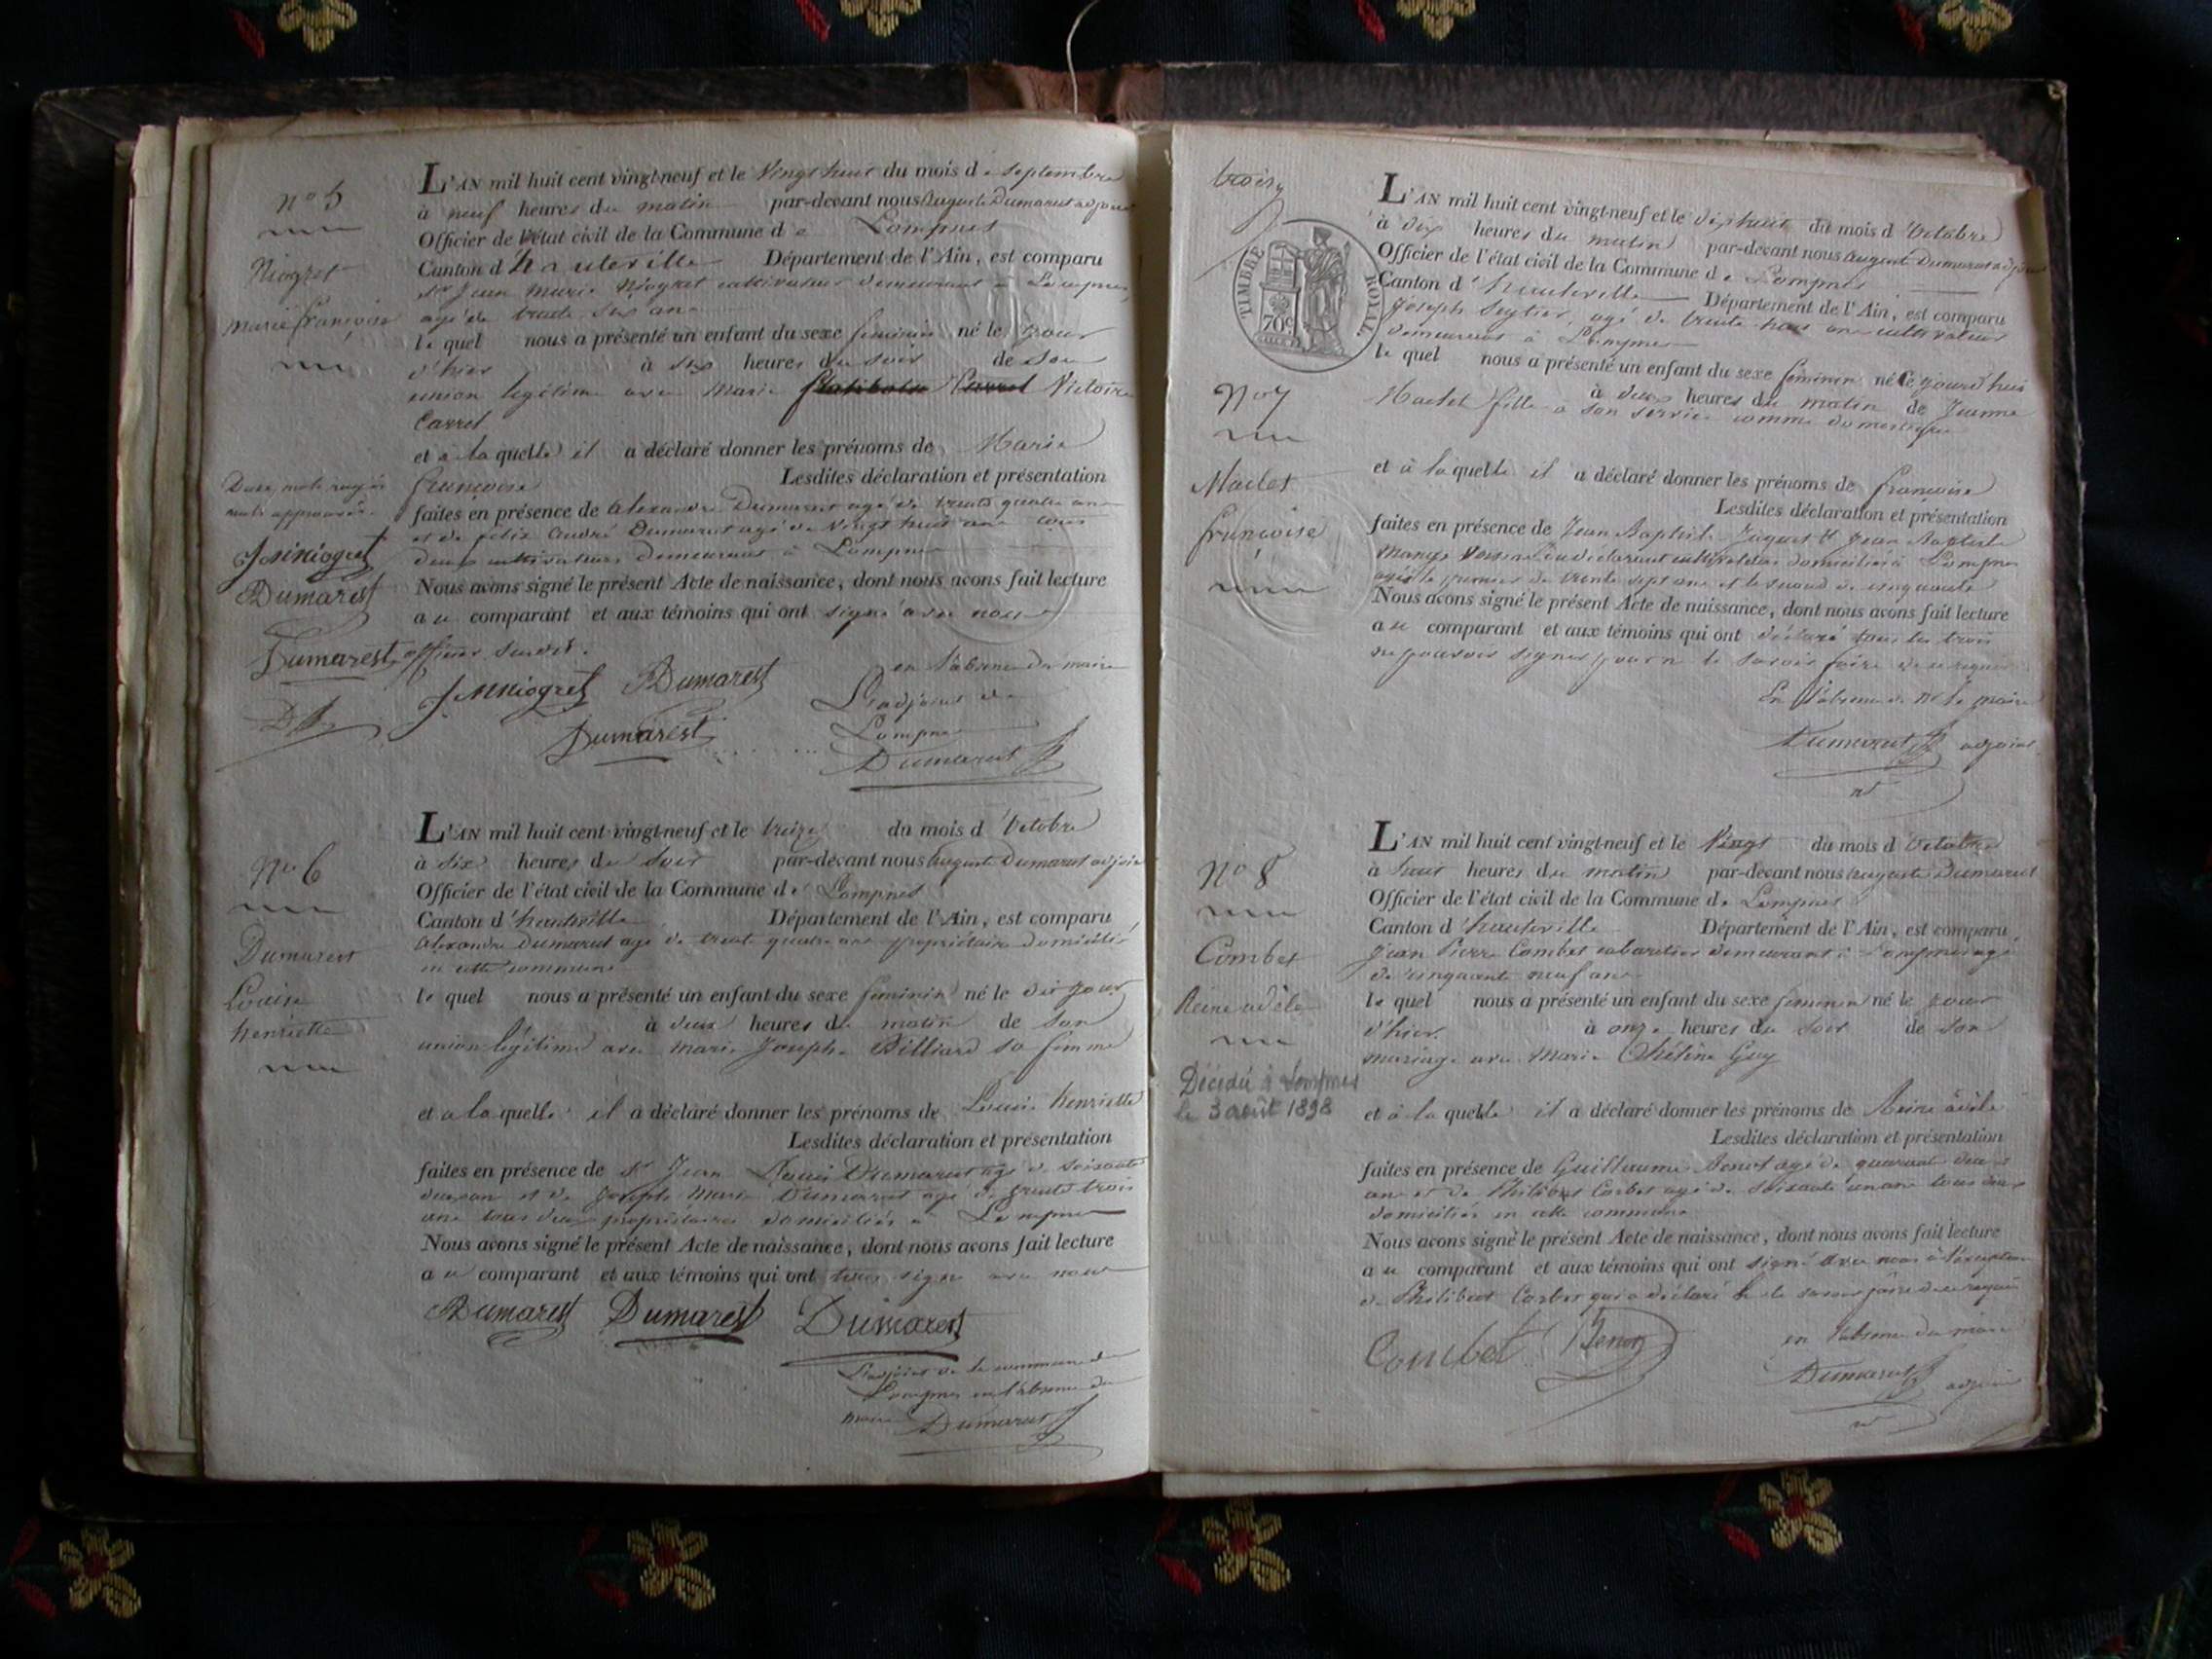 n° 5
Niogret
marie françoise
Deux mots rayés
nuls approuvés.
JMNiogret
Dumarest
Dumarest officier susdit.
L'AN mil huit cent vingt-neuf et le vingt huit du mois de septembre
à neuf heures du matin par-devant nous auguste Dumarest adjoint
Officier de l'état civil de la Commune de Lompnes
Canton d'hauteville Département de l'Ain, est comparu
Sr Jean Marie Niogret cultivateur demeurant à Lompnes,
agé de trente six ans
le quel nous a présenté un enfant du sexe féminin né le jour
d'hier à six heures du soir de son
union légitime avec Marie Victoire
Carrel
et à la quelle il a déclaré donner les prénoms de Marie
françoise Lesdites déclaration et présentation
faites en présence de alexandre Dumarest agé de trente quatre ans
et de félix andré Dumarest agé de vingt huit ans tous
deux cultivateurs demeurant à Lompnes
Nous avons signé le présent Acte de naissance, dont nous avons fait lecture
au comparant et aux témoins qui ont signé avec nous
JMNiogret Dumarest
Dumarest
en l'absence du maire
L'adjoint de
Lompnes
Dumarest
n° 6
Dumarest
Louise
henriette
L'AN mil huit cent vingt-neuf et le treize du mois d'octobre
à six heures du soir par-devant nous auguste Dumarest adjoint
Officier de l'état civil de la Commune de Lompnes
Canton d'hauteville Département de l'Ain, est comparu
alexandre Dumarest agé de trente quatre ans propriétaire domicilié
en cette commune
le quel nous a présenté un enfant du sexe féminin né le dit jour
à deux heures du matin de son
union légitime avec marie Josephe Billiard sa femme
et a la quelle il a déclaré donner les prénoms de Louise henriette
Lesdites déclaration et présentation
faites en présence de Sr Jean Louis Dumarest agé de soixante
deux ans et de Joseph Marie Dumarest agé de trente trois
ans tous deux propriétaires domiciliés à Lompnes
Nous avons signé le présent Acte de naissance, dont nous avons fait lecture
au comparant et aux témoins qui ont tous signé avec nous
Dumarest Dumarest Dumarest
L'adjoint de la commune de
Lompnes en l'absence du
maire Dumarest
trois
TIMBRE ROYAL
70c
n° 7
Maclet
françoise
L'AN mil huit cent vingt-neuf et le dix huit du mois d'octobre
à dix heures du matin par-devant nous auguste Dumarest adjoint
Officier de l'état civil de la Commune de Lompnes
Canton d'hauteville Département de l'Ain, est comparu
Joseph agé de trente ans cultivateur
demeurant à Lompnes
le quel nous a présenté un enfant du sexe féminin né ce jourd'hui
à deux heures du matin de Jeanne
Maclet fille à son service comme domestique
et à la quelle il a déclaré donner les prénoms de françoise
Lesdites déclaration et présentation
faites en présence de Jean Baptiste et Jean Baptiste
du déclarant cultivateurs domiciliés à Lompnes
agés le premier de trente sept ans et le second de cinquante
Nous avons signé le présent Acte de naissance, dont nous avons fait lecture
au comparant et aux témoins qui ont déclaré tous les trois
ne pouvoir signer pour ne le savoir faire de ce requis
En l'absence de Mr le maire
Dumarest adjoint
n° 8
Combet
Reine adèle
Décédé à Lompnes
le 3 août 1898
L'AN mil huit cent vingt-neuf et le vingt du mois d'octobre
à huit heures du matin par-devant nous auguste Dumarest
Officier de l'état civil de la Commune de Lompnes
Canton d'hauteville Département de l'Ain, est comparu
Jean Pierre Combet cabaretier demeurant à Lompnes agé
de cinquante neuf ans
le quel nous a présenté un enfant du sexe féminin né le jour
d'hier à onze heures du soir de son
mariage avec Marie hélène Guy
et à la quelle il a déclaré donner les prénoms de Reine adèle
Lesdites déclaration et présentation
faites en présence de Guillaume Benot agé de quarante deux
ans et de Philibert Carbet agé de soixante un ans tous deux
domiciliés en cette commune
Nous avons signé le présent Acte de naissance, dont nous avons fait lecture
au comparant et aux témoins qui ont signé avec nous à l'exception
de Philibert Carbet qui a déclaré ne le savoir faire de ce requis
Combet Benot
en l'absence du maire
Dumarest adjoint